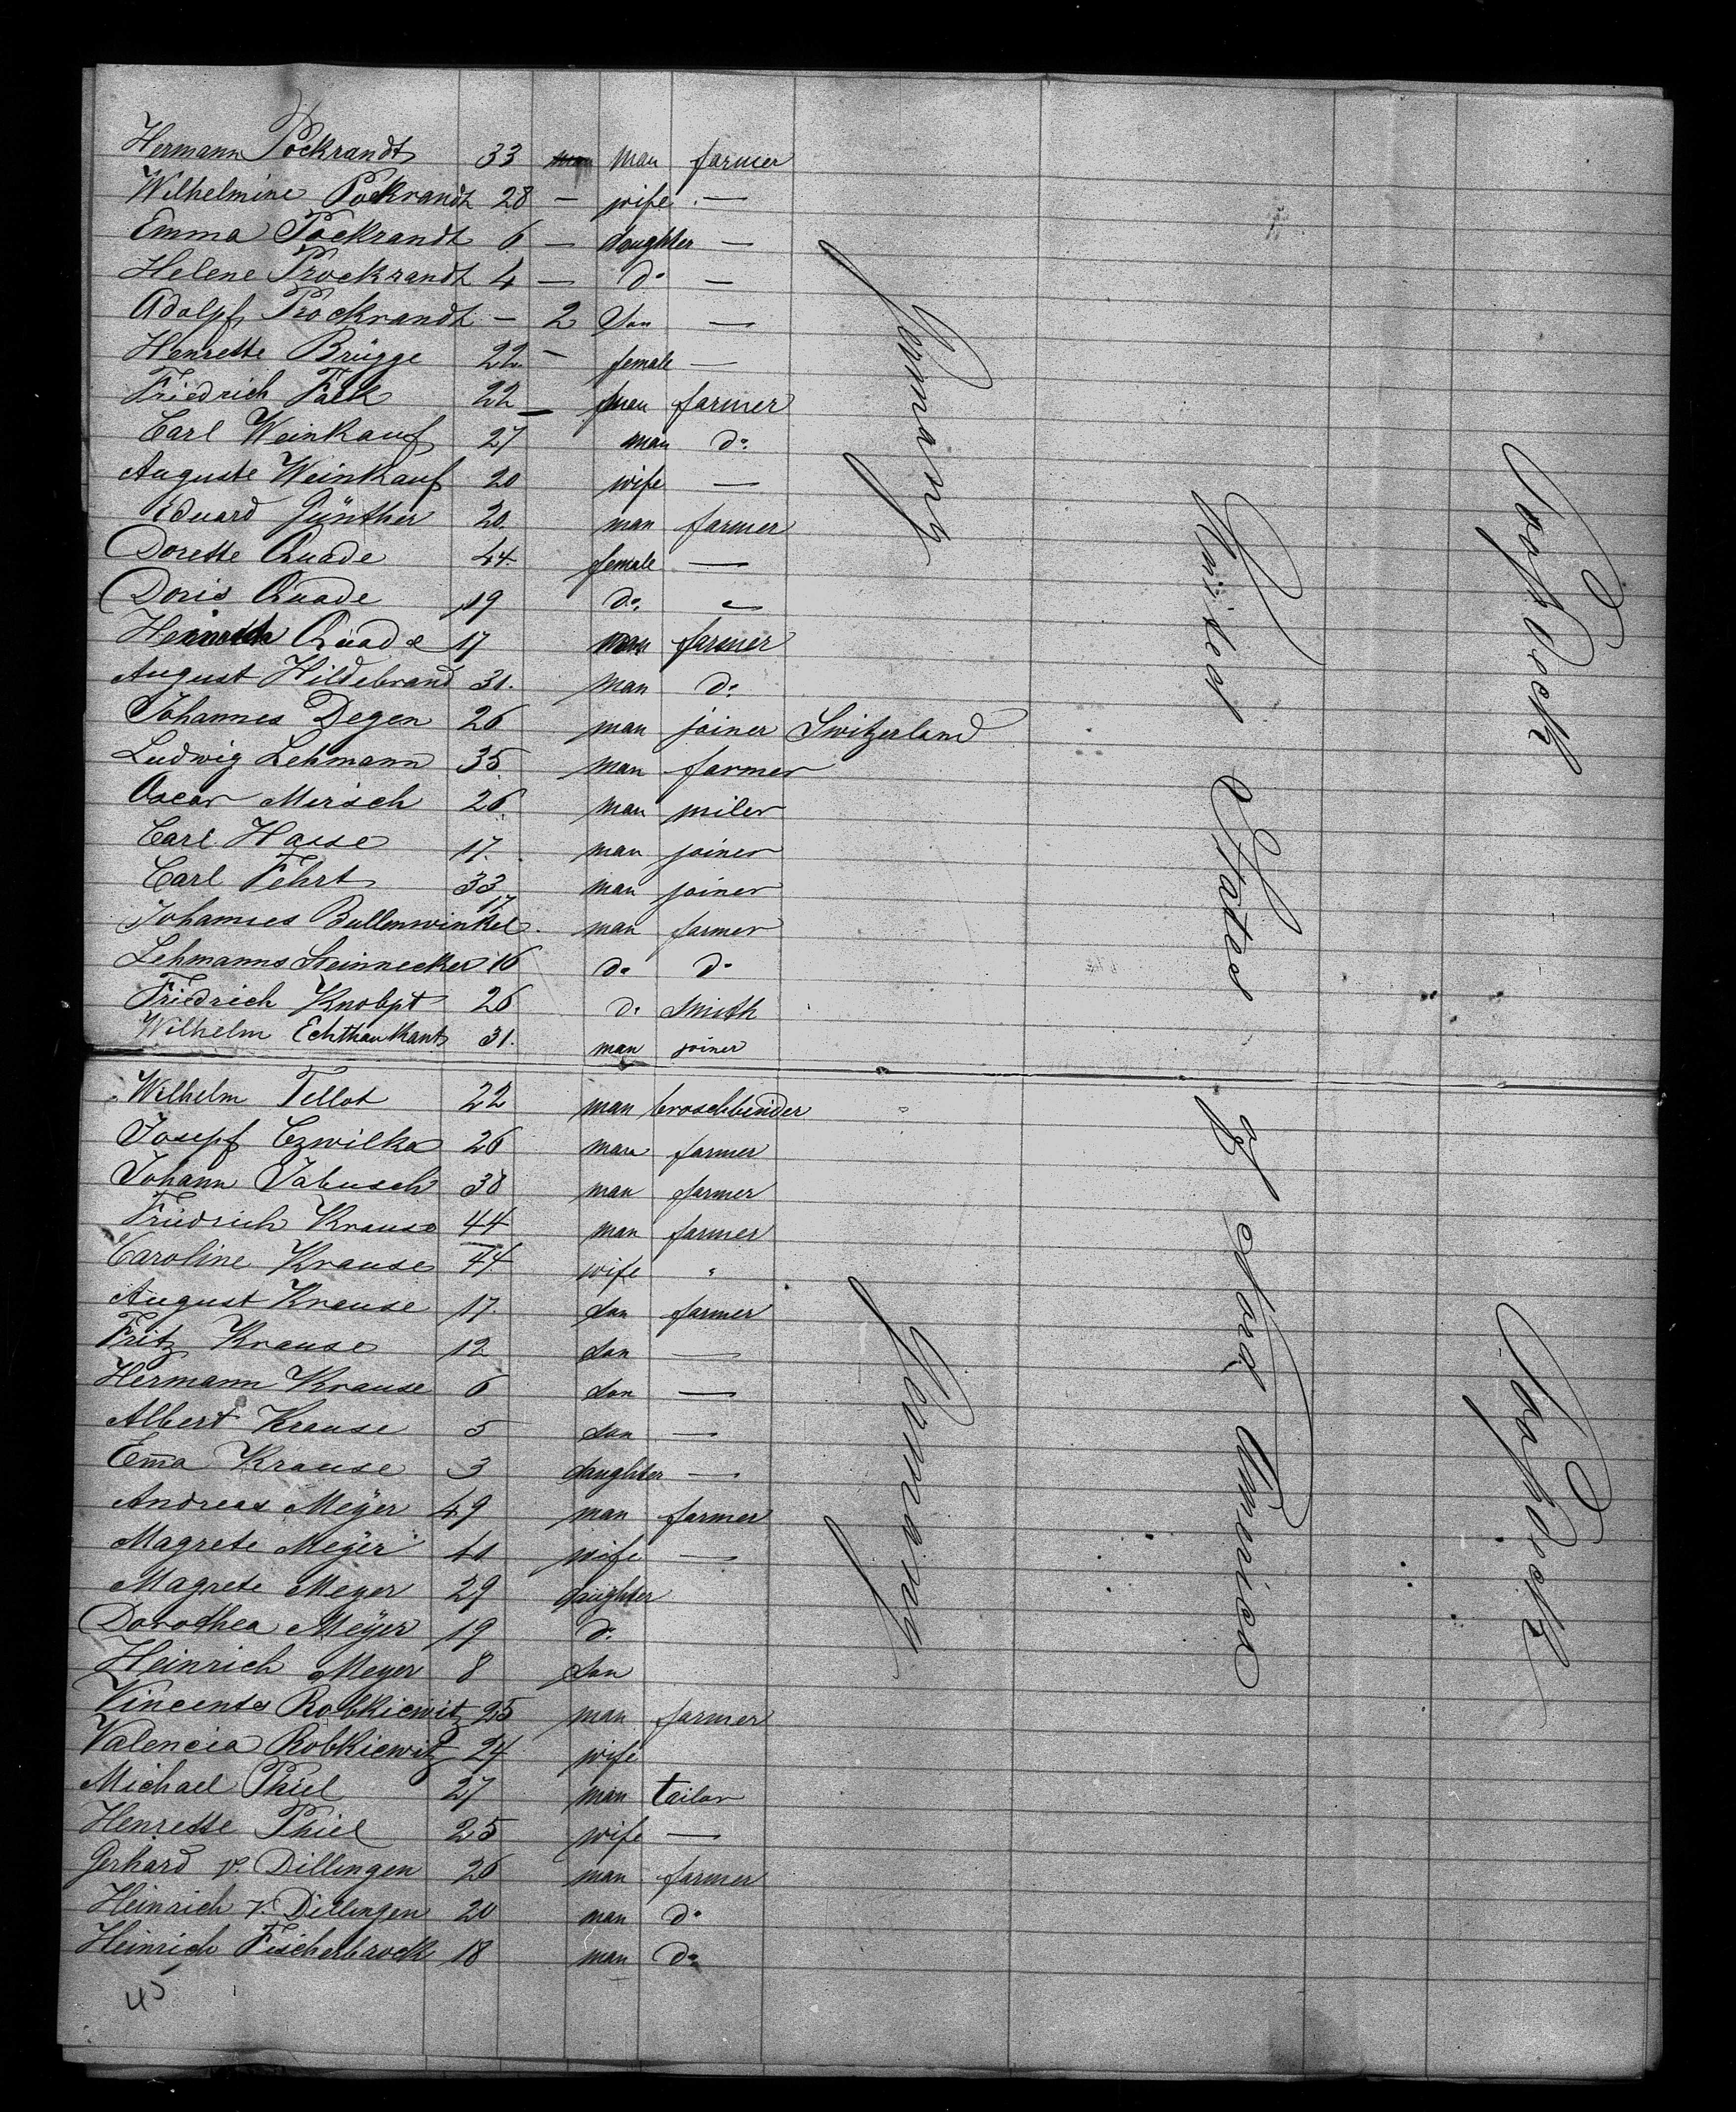 Hermann Pockrandt 33 man farmer
Wilhelmine Pockrandt 28 — wife —
Emma Pockrandt 6 — daughter —
Helene Prockrandt 4 — do —
Adolpf Prockrandt — 2 Son —
Henrette Brügge 22 — female —
Friedrich Falk 22 — man farmer
Carl Weinkauf 27 man do
Auguste Weinkauf 20 wife —
Eduard Günther 20 man farmer
Dorette Quade 44 female —
Doris Quade 19 do —
Heinrich Quade 17 man farmer
August Hildebrand 31. man do
Johannes Degen 26 man joiner Switzerland
Ludwig Lehmann 35 man farmer
Oscar Mirsch 26 man miler
Carl Hasse 17. man joiner
Carl Fehrt 33 man joiner
Johannes Bullenwinkel 17 man farmer
Lehmanns Steinnecker 16 do do
Friedrich Knobpt 26 do Smith
Wilhelm Echthaukant 31. man joiner
Wilhelm Tellot 22 man broschbinder
Josepf Czwilka 26 man farmer
Johann Jabusch 38 man farmer
Friedrich Krause 44 man farmer
Caroline Krause 44 wife "
August Krause 17. Son farmer
Fritz Krause 12 Son —
Hermann Krause 6 Son —
Albert Krause 5 Son —
Em̄a Krause 3 daughter —
Andreas Meÿer 49 man farmer
Magrete Meÿer wife —
Magrete Meyer 29 daughter
Dorothea Meÿer 19 do
Heinrich Meyer 8 Son
Vincents Robkiewitz 25 man farmer
Valencia Robkiewitz 24 wife
Michael Thiel 27 man tailor
Henrette Thiel 25 wife —
Gerhard v. Dillingen 26 man farmer
Heinrich v. Dillingen 20 man do
Heinrich Fischerbrock 18 man do
45
Germany
Germany
United States of Nord America